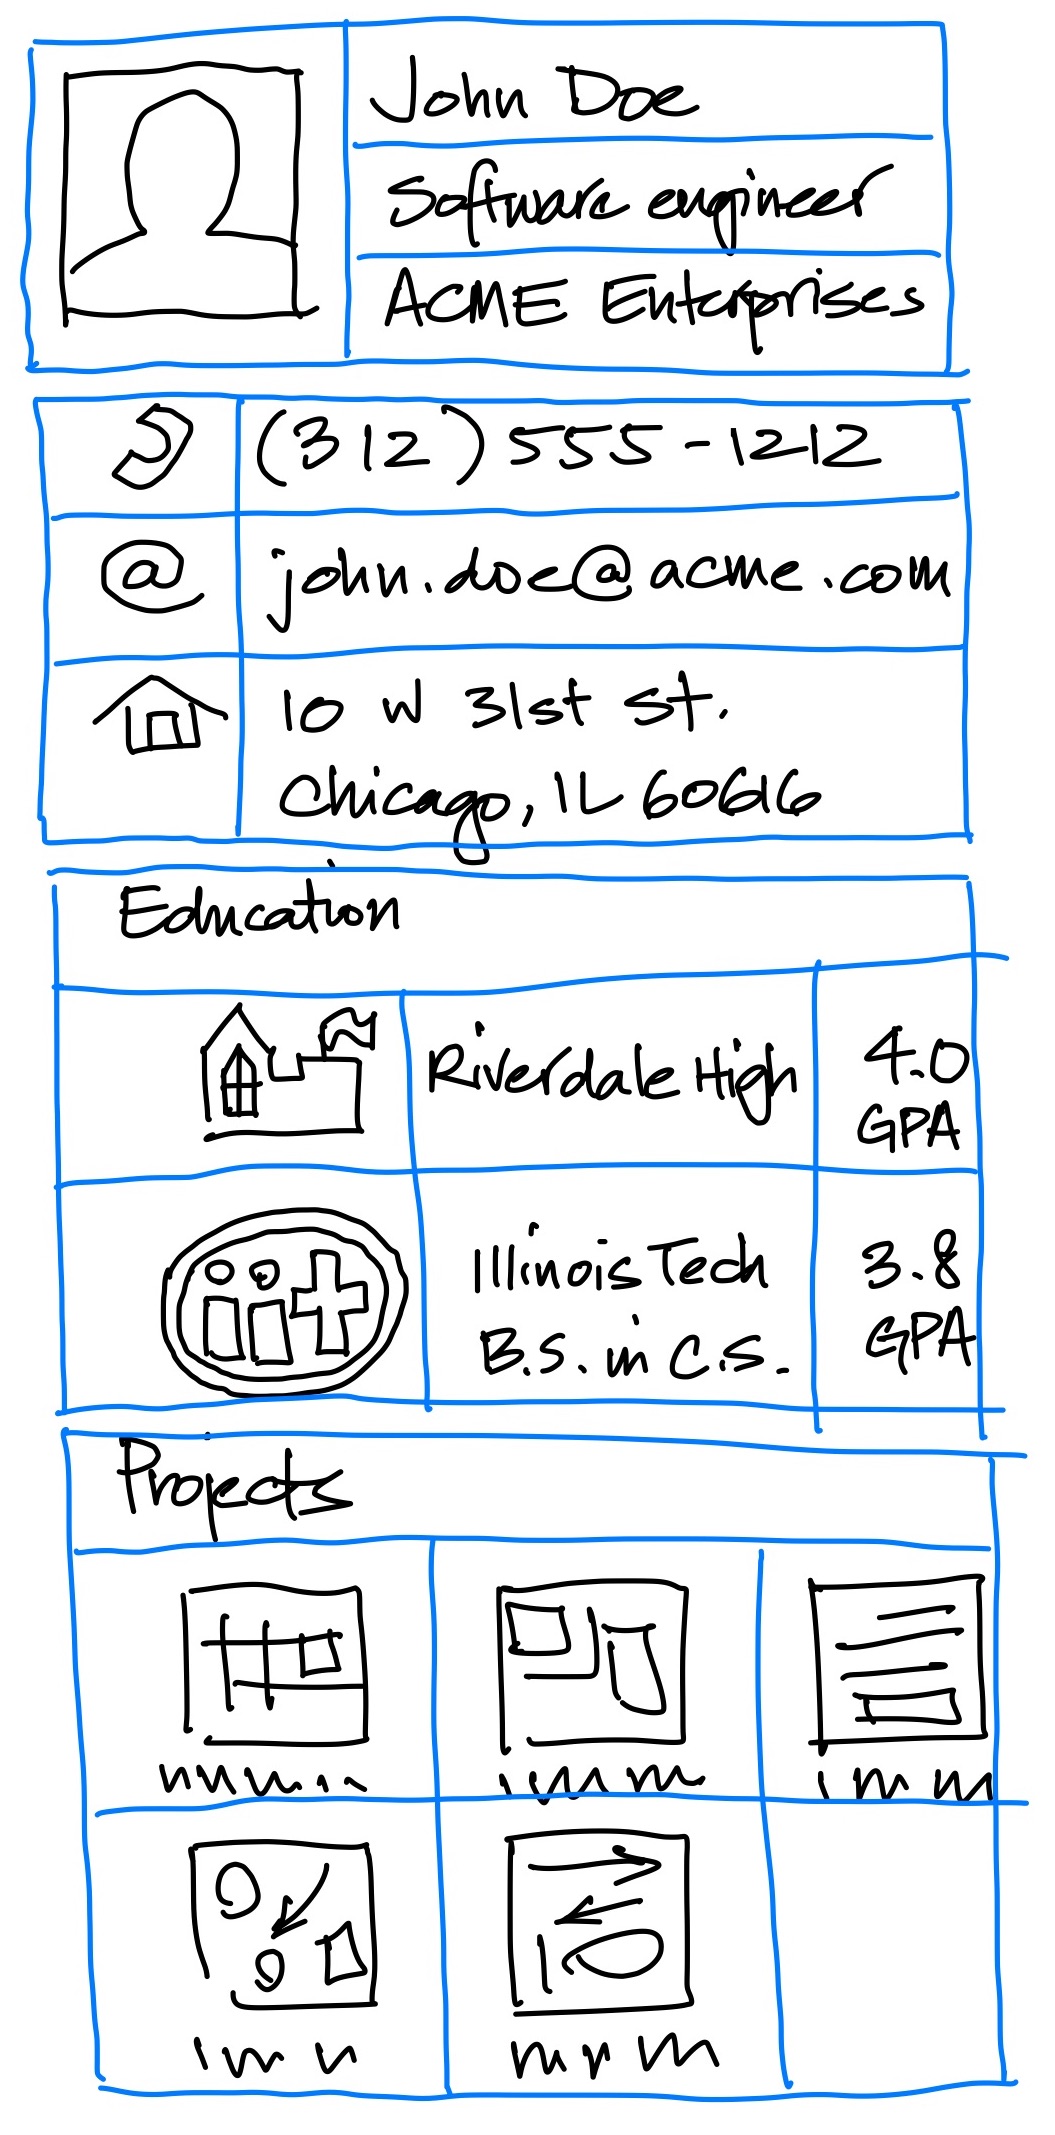 John Doe
Software engineer
ACME Enterprises
(312) 555-1212
@
john.doe@acme.com
10 W 31st St.
Chicago, IL 60616
Education
Riverdale High
4.0
GPA
Illinois Tech
B.S. in C.S.
3.8
GPA
Projects